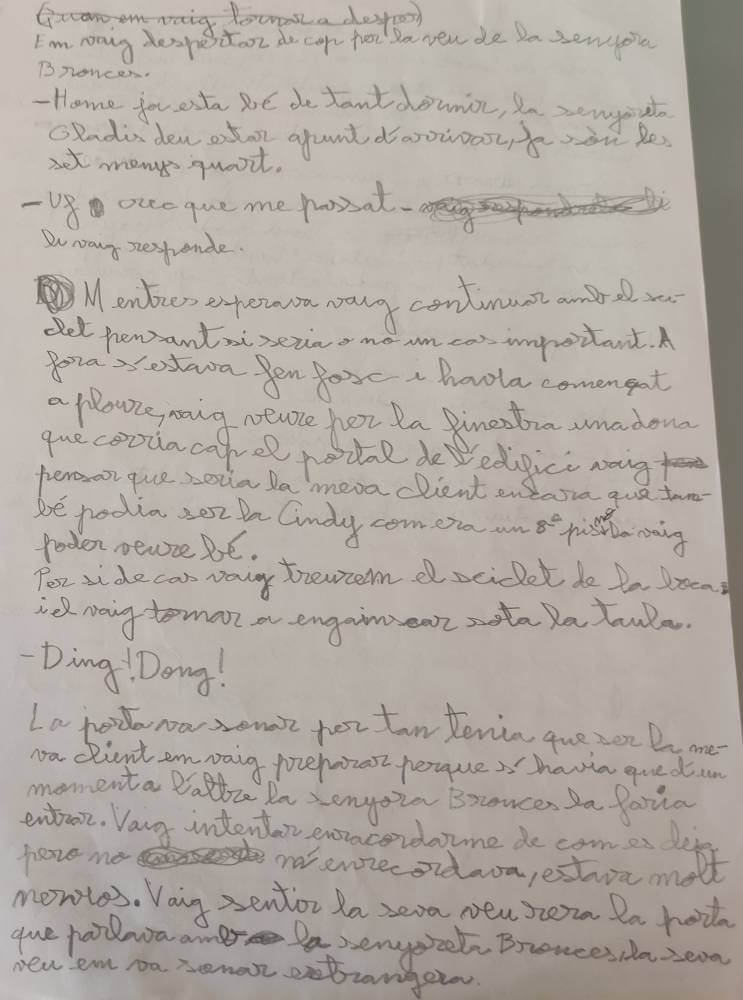 Quan em vaig tornar a desper)
Em vaig despertar de cop per la veu de la senyora
Bronces.
-Home ja esta bé de tant dormir, la senyoreta
Gladis deu estar apunt d'arrivar, ja són les
set menys quart.
-Uf crec que me passat - vaig respondre li
li vaig responde.
Mentres esperava vaig continuar amb el xi-
clet pensant si seria o no un cas important. A
fora s'estava fen fosc i havia començat
a ploure, vaig veure per la finestra una dona
que corria cap el portal de l'edifici vaig
pensar que seria la meva client encara que tam-
bé podia ser la Cindy com era un 8º pis no la vaig
poder veure bé.
Per si de cas vaig treurem el xiclet de la boca
i el vaig tornar a enganxar sota la taula.
-Ding! Dong!
La porta va sonar per tan tenia que ser la me-
va client em vaig preparar perque s'havia que d'un
moment a l'altre la senyora Bronces la faria
entrar. Vaig intentar enracordarme de com es deia
pero no m'enrecordava, estava molt
nervios. Vaig sentir la seva veu rera la porta
que parlava amb la senyoreta Bronces, la seva
veu em va sonar extrangera.